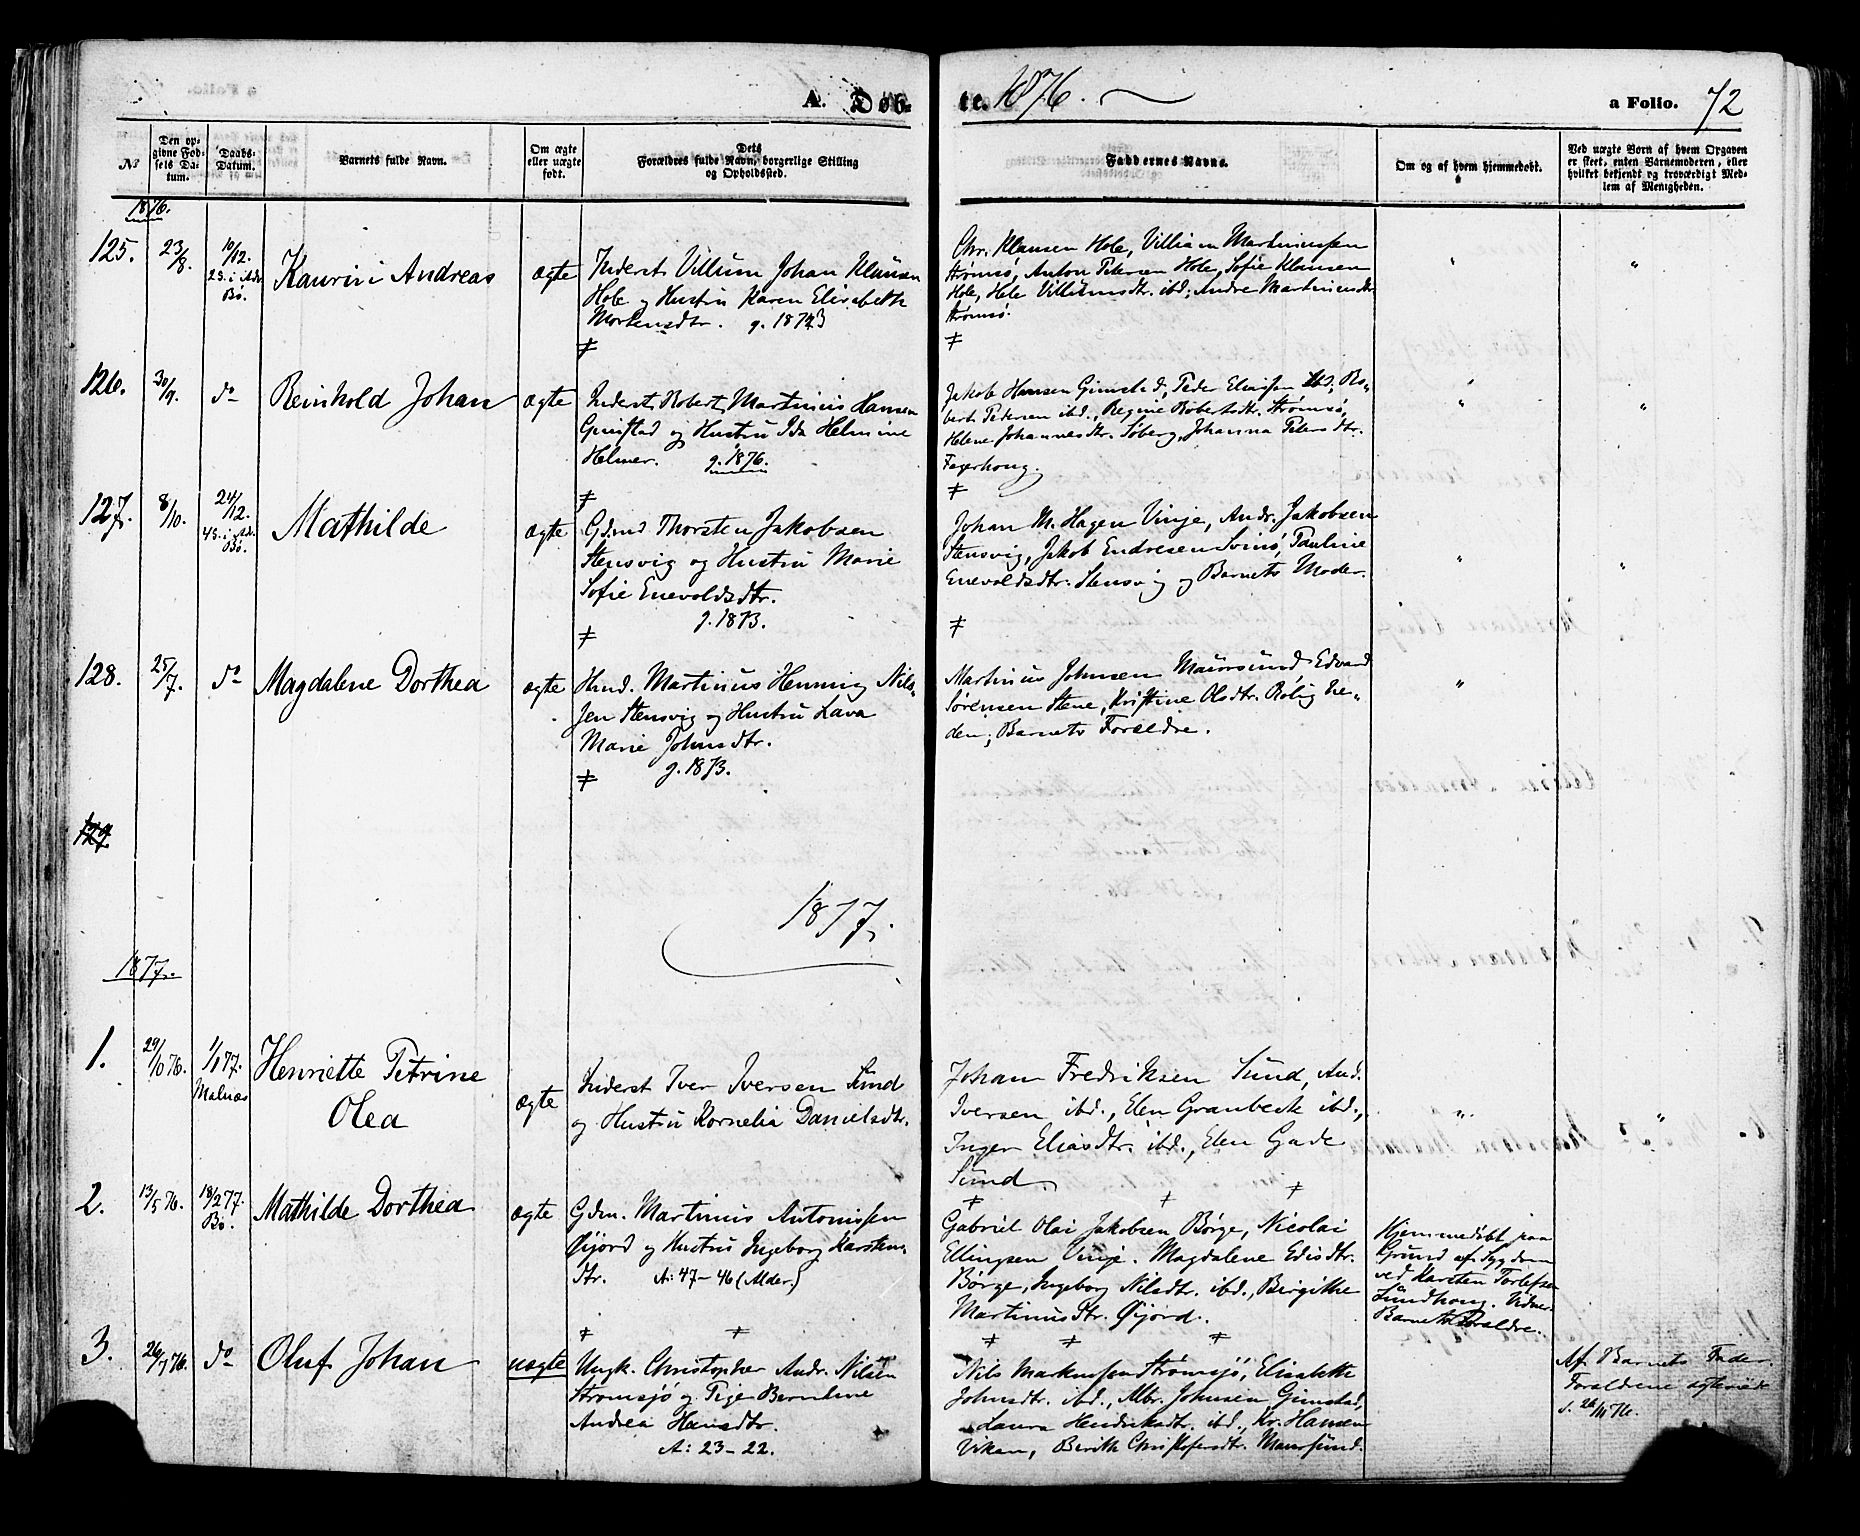 A. Døb-
te. 1876.
a Folio. 72
No
Den op-
givne Fød-
sels Da-
tum.
Daabs-
Datum.
Barnets fulde Navn.
Om ægte
eller uægte
født.
Dets
Forældres fulde Navn, borgerlige Stilling
og Opholdssted.
Faddernes Navne.
Om og af hvem hjemmedøbt.
Ved uægte Børn af hvem Opgaven
er skeet, enten Barnemoderen, eller
hvilket bekjendt og troværdigt Med-
lem af Menigheden.
1876.
125.
23/8.
10/12.
23. i Adv.
Bø.
Kaurin Andreas
ægte
Inderst Villum Johan Klausen
Hole og Hustru Karen Elisabeth
Mortensdtr. g. 1873
Chr. Klausen Hole, Villiam Martinussen
Strømsø, Anton Petersen Hole, Sofie Klausen
Hole, Hele Villumsdtr. ibd; Andre Martinusdtr
Strømsø.
126.
30/9.
do
Reinhold Johan
ægte
Inderst Robert Martinus Hansen
Guvstad og Hustru Ida Helmine
Helmer. g. 1876.
Jakob Hansen Gimstad, Peder Eliassen ibd, Ro-
bert Petersen ibd., Regine Robertsdtr. Strømsø,
Helene Johannesdtr. Søberg, Johanna Petersdtr.
Fagerhoug.
127.
8/10.
24/12.
4 S. i Adv.
Bø.
Mathilde
ægte
Gdmd Thorsten Jakobsen
Stensvig og Hustru Marie
Sofie Enevoldsdtr.
g. 1873.
Johan M. Hagen Vinje, Andr. Jakobsen
Stensvig, Jakob Endresen Svinø, Pauline
Enevoldsdtr. Stensvig og Barnets Moder.
128.
25/7.
do
Magdalene Dorthea
ægte
Hmd. Martinus Henning Nils-
sen Stensvig og Hustru Lava
Marie Johnsdtr.
g. 1873.
Martinus Johnsen Maursund, Edvard
Sørensen Stene, Kristine Olsdtr. Rolig he-
den; Barnets Forældre.
129.
1877.
1877.
1.
29/10 76.
1/1 77.
Malnæs
Henriette Petrine
Olea
ægte
Inderst Iver Iversen Sund
og Hustru Kornelia Danielsdtr.
Johan Fredriksen Sund, And.
Iversen ibd., Elen Granbeck ibd.,
Inger Eliasdtr. ibd., Elen Gade
Sund.
2.
13/5 76.
18/2 77.
Bø.
Mathilde Dorthea
ægte
Gdm. Martinus Antonissen
Øijord og Hustru Ingeborg Karsten-
dtr. A: 47-46 (Alder.)
Gabriel Olai Jakobsen Børge, Nicolai
Ellingsen Vinje. Magdalene Edisdtr.
Børge, Ingeborg Nilsdtr. ibd., Birgithe
Martinusdtr. Øijord.
Hjemmedøbt paa
Grund af Sygdom
ved Karsten Torlefsen
Sundhoug. Vidner
Barnets Forældre.
3.
26/7 76.
do
Oluf Johan
uægte
Ungk. Christopher Andr. Nilsen
Strømsjø og Pige Berntine
Andrea Hansdtr.
A: 23-22.
Nils Markussen Strømsjø, Elisabeth
Johnsdtr. ibd., Albr. Johnsen Gimstad,
Laura Hendriksdtr. ibd., Kr. Hansen
Vikan, Berith Christofersdtr. Maursund.
Af Barnets Fader.
Forældrene ægteviede
d. 26/11 76.